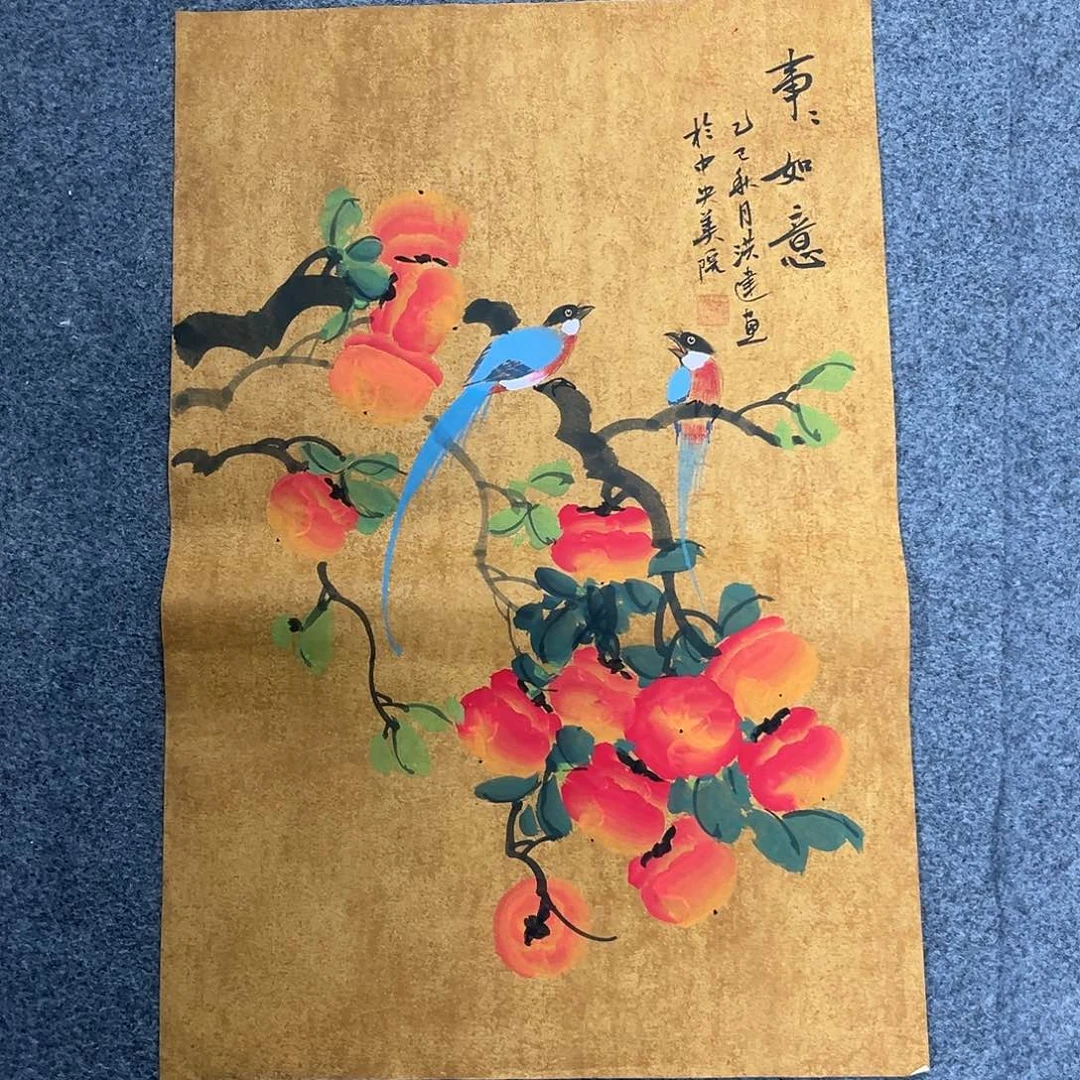 事〻如意
乙已秋月洪達画
於中央美院